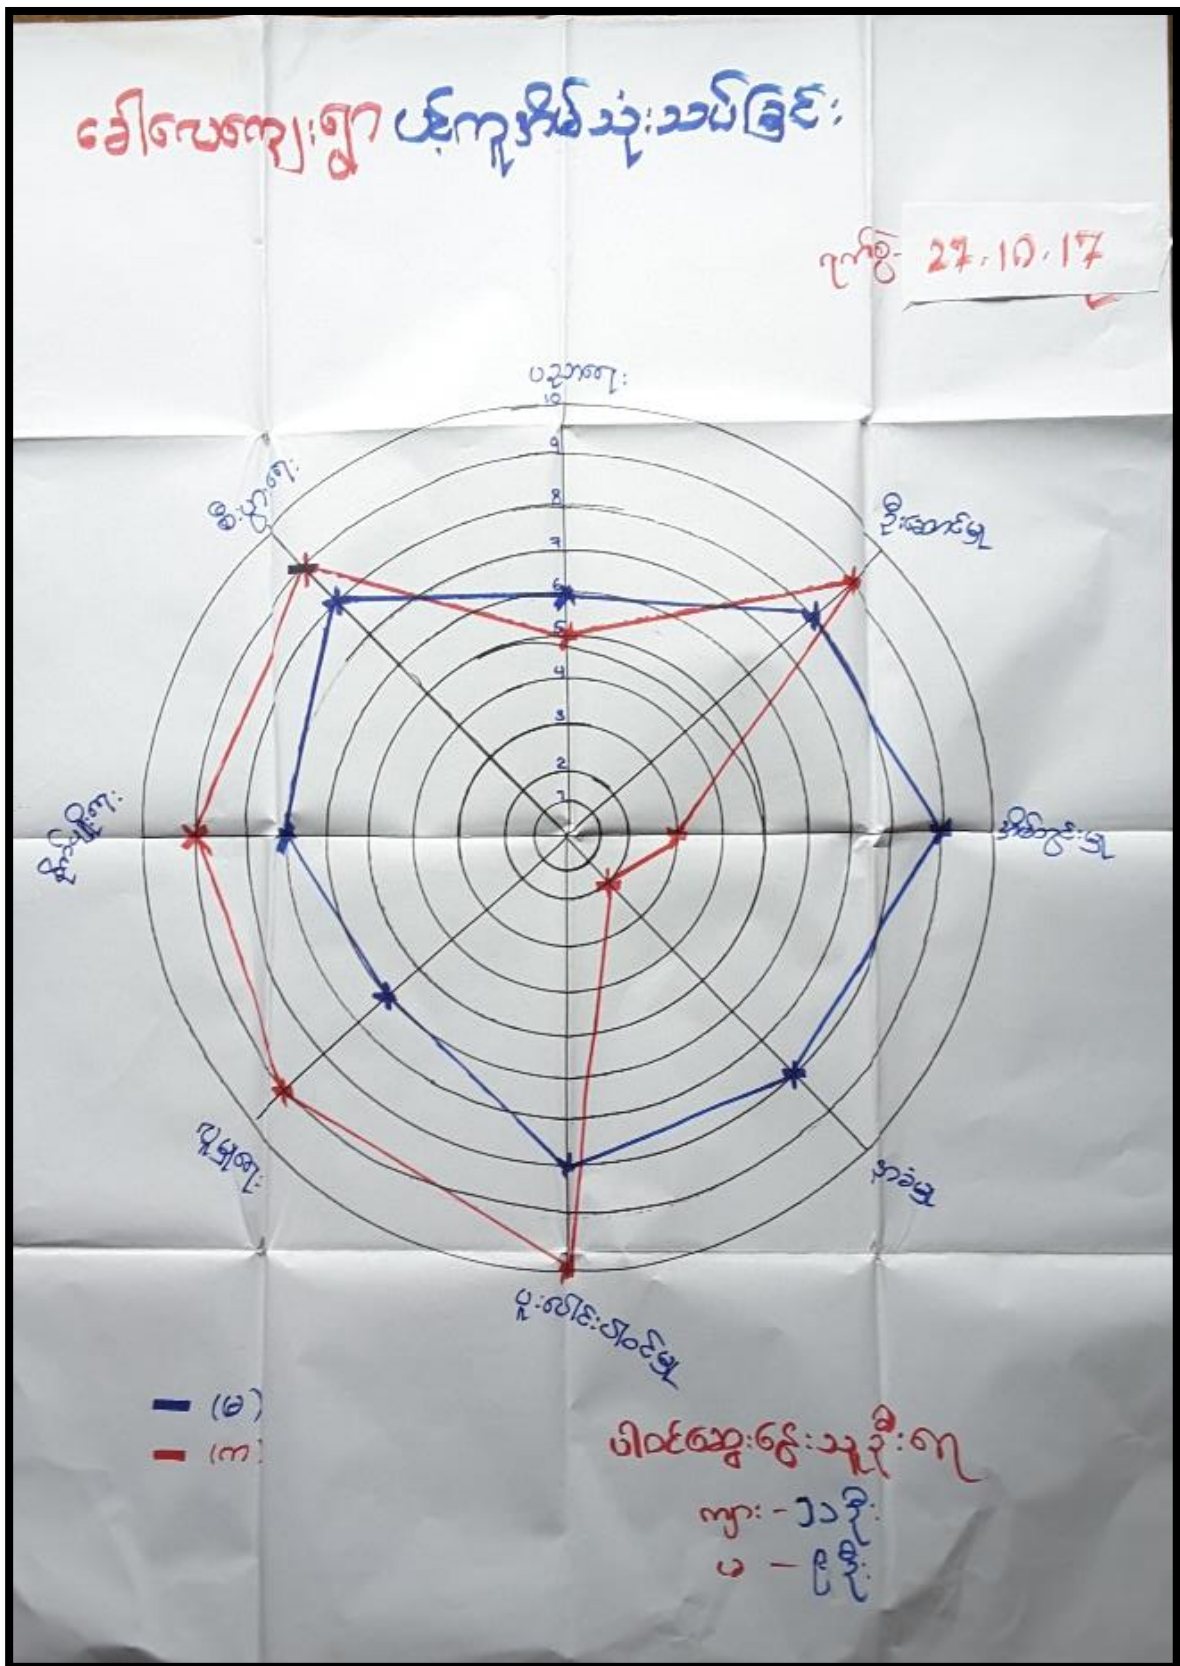 ခေါ်လေကျေးရွာ ပင့်ကူအိမ်သုံးသပ်ခြင်း
ရက်စွဲ - 27.10.17
ပညာရေး
10
9
8
7
6
5
4
3
2
1
စီးပွားရေး
ဦးဆောင်မှု
အိမ်တွင်းမှု
နာခံမှု
ပူးပေါင်းပါဝင်မှု
လူမှုရေး
(မ)
(က)
ပါဝင်ဆွေးနွေးသူဦးရေ
ကျား - ၁၁ ဦး
မ - ၉ ဦး